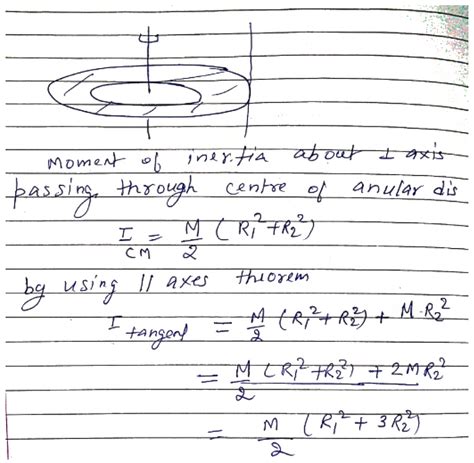 Moment of inertia about ⊥ axis
passing through centre of anular dis
I_CM = M/2 (R₁² + R₂²)
by using || axes thiorem
I_tangent = M/2 (R₁² + R₂²) + M·R₂²
= M (R₁² + R₂²) + 2MR₂² / 2
= M/2 (R₁² + 3R₂²)